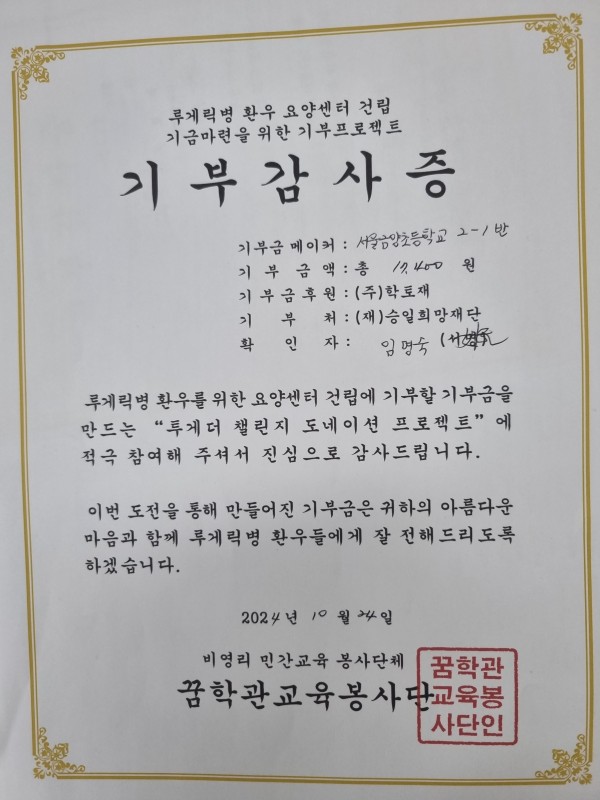 루게릭병 환우 요양센터 건립
기금마련을 위한 기부프로젝트
기부감사증
기부금 메이커 : 서울금양초등학교 2-1 반
기 부 금 액 : 총 17,400 원
기 부 금 후 원 : (주)학토재
기 부 처 : (재)승일희망재단
확 인 자 : 임명숙
루게릭병 환우를 위한 요양센터 건립에 기부할 기부금을
만드는 “투게더 챌린지 도네이션 프로젝트” 에
적극 참여해 주셔서 진심으로 감사드립니다.
이번 도전을 통해 만들어진 기부금은 귀하의 아름다운
마음과 함께 루게릭병 환우들에게 잘 전해드리도록
하겠습니다.
2024년 10 월 24일
비영리 민간교육 봉사단체
꿈학관교육봉사단
꿈학관
교육봉
사단인